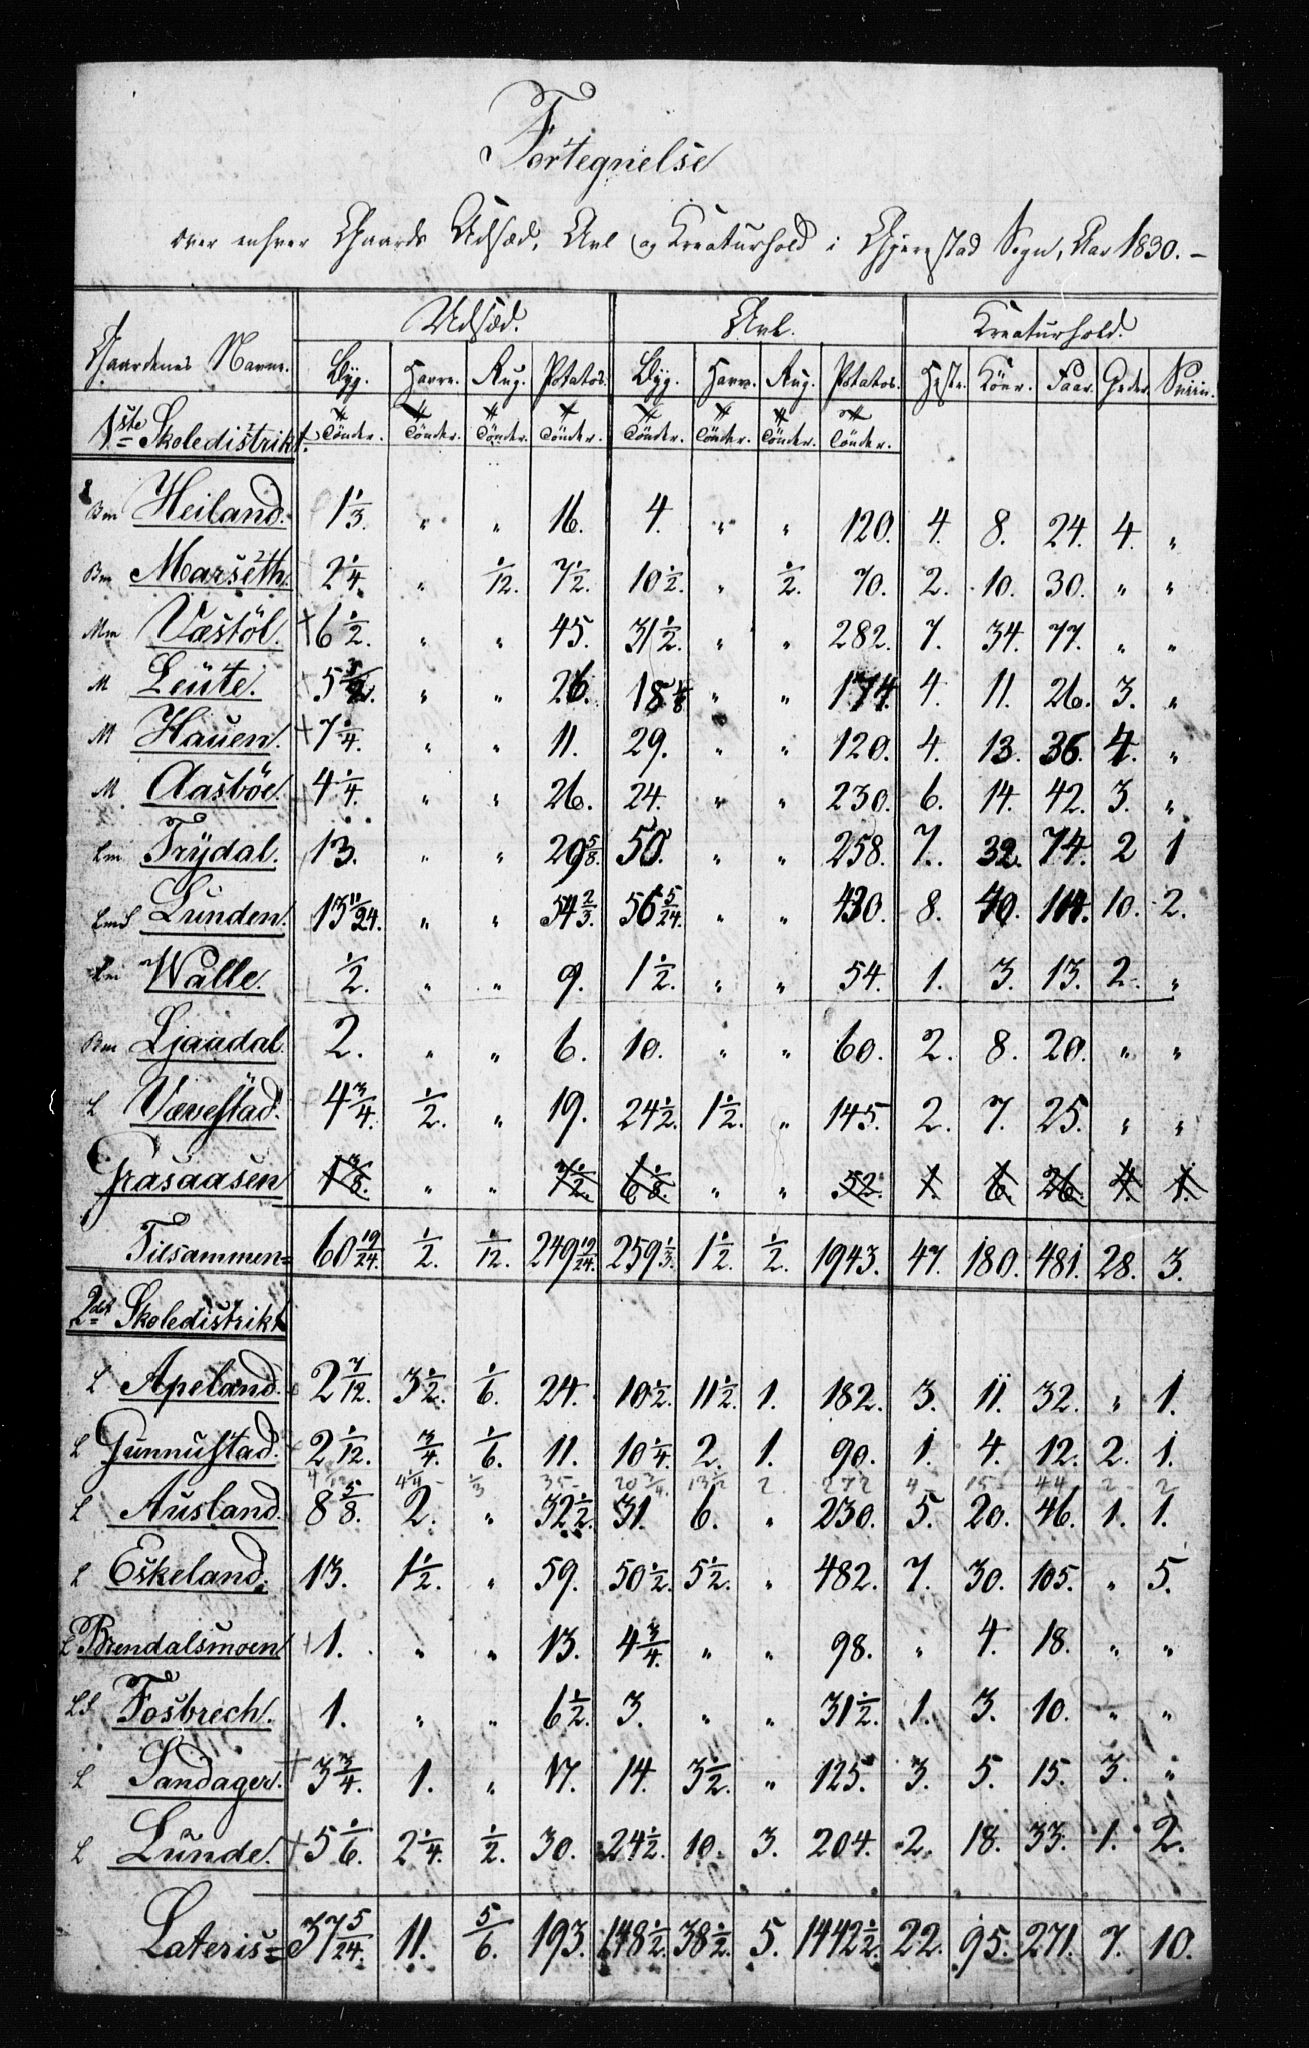 Fortegnelse
over enhver Gaards Udsæd, Avl og Kreaturhold i Gjerrestad Sogn, Aar 1830. –
Gaardenes Navne. Udsæd. Avl. Kreaturhold.
Byg. Havre. Rug. Potatos. Byg. Havre. Rug. Potatos. Heste. Köer. Faar. Geder. Sviin.
1ste Skoledistrikt. Tönder. Tönder. Tönder. Tönder. Tönder. Tönder. Tönder. Tönder.
Bm Heiland. 1 1/3. " " 16. 4. " " 120. 4. 8. 24. 4. "
Bm Marseth. 2 1/4. " 1/12. 7 1/2. 10 1/2. " 1/2. 70. 2. 10. 30. " "
Mm Væstöl. + 6 1/2. " " 45. 31 1/2. " " 282. 7. 34. 77. " "
M Leüte. + 5 " " 26. 18 1/8 " " 174. 4. 11. 26. 3. "
M Haüen. + 7 1/4. " " 11. 29. " " 120. 4. 13. 36. 4. "
M. Aasböe. 4 1/4. " " 26. 24. " " 230. 6. 14. 42. 3. "
Lm Trÿdal. 13. " " 29 5/8. 50. " " 258. 7. 32. 74. 2 1
Lunden. 13 11/24. " " 54 2/3. 56 5/24. " " 430. 8. 40. 104. 10. 2.
Lm Walle. 1/2. " " 9. 1 1/2. " " 54. 1. 3. 13. 2. "
Bm Ljaadal. 2. " " 6. 10. " " 60. 2. 8. 20. " "
L Vævestad. 4 3/4. 1/2. " 19. 24 1/2. 1 1/2. " 145. 2. 7. 25. " "
Grasaasen 1 3/8. " " 7 1/2. 6 1/8. " " 52. 1. 6. 26. 4. 1.
Tilsammen = 60 19/24. 1/2. 1/12. 249 19/24. 259 1/3. 1 1/2. 1/2. 1943. 47. 180. 481. 28. 3.
2det Skoledistrikt
L Apeland. 2 7/12. 3 1/2. 1/6. 24. 10 1/2. 11 1/2. 1. 182. 3. 11. 32. " 1.
L Gunnustad. 2 1/12. 3/4. 1/6. 11. 10 1/4. 2. 1. 90. 1. 4. 12. 2. 1.
4 1/4 1/3 35 20 3/4. 13 1/2 2 272 4 15 44 2 2
L Ausland. 8 5/8. 2. " 32 1/2. 31. 6. " 230. 5. 20. 46. 1. 1.
L Eskeland. 13. 1 1/2. " 59. 50 1/2. 5 1/2. " 482. 7. 30. 105. " 5.
L Brendalsmoen + 1. " " 13. 4 3/4. " " 98. " 4. 18. " "
LS Fosbrech. 1. " " 6 1/2. 3. " " 31 1/2. 1. 3. 10. " "
L Sandager. + 3 3/4. 1. " 17. 14. 3 1/2. " 125. 3. 5. 15. 3. "
L Lünde. + 5 1/6. 2 1/4. 1/2. 30. 24 1/2. 10. 3. 204. 2. 18. 33. 1. 2.
Lateris = 37 5/24. 11. 5/6. 193. 148 1/2. 38 1/2. 5. 1442 1/2. 22. 95. 271. 7. 10.